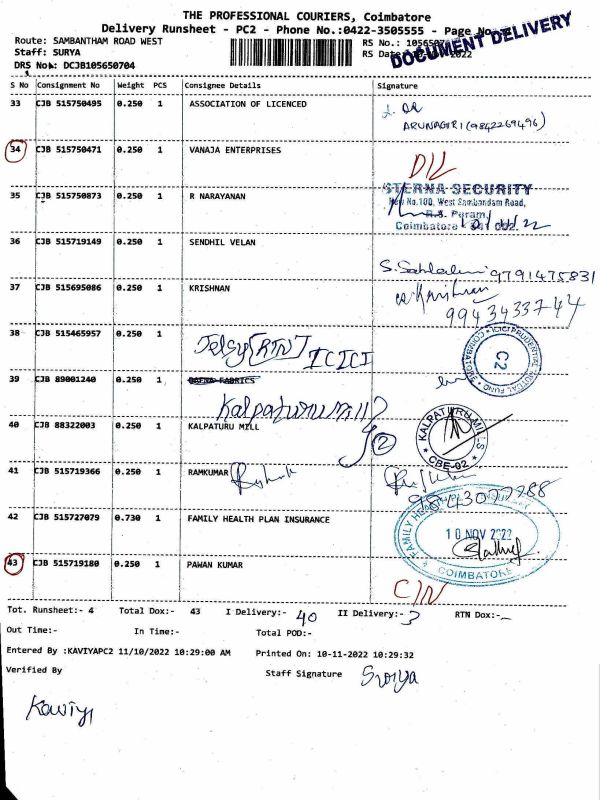 THE PROFESSIONAL COURIERS, Coimbatore
Delivery Runsheet - PC2 - Phone No.:0422-3505555 - Page No.
DOCUMENT DELIVERY
Route: SAMBANTHAM ROAD WEST
RS No.:
Staff: SURYA
RS Date
DRS No.: DCJB105650704
S No Consignment No Weight PCS Consignee Details Signature
33 CJB 515750495 0.250 1 ASSOCIATION OF LICENCED
ARUNAGIRI (9842269496)
34 CJB 515750471 0.250 1 VANAJA ENTERPRISES
D/L
35 CJB 515750873 0.250 1 R NARAYANAN
STERNA SECURITY
New No.100, West Sambandam Road,
R.S. Puram,
Coimbatore - 641 002.
36 CJB 515719149 0.250 1 SENDHIL VELAN
9791475831
37 CJB 515695086 0.250 1 KRISHNAN
Krishnan
9943433744
38 CJB 515465957 0.250 1
[RTN] ICICI
ICICI PRUDENTIAL MUTUAL FUND COIMBATORE
C2
39 CJB 89001240 0.250 1 DAFNA FABRICS
Kalpaturu Mill
40 CJB 88322003 0.250 1 KALPATURU MILL
2
KALPATURU MILLS
CBE-02
41 CJB 515719366 0.250 1 RAMKUMAR
42 CJB 515727079 0.730 1 FAMILY HEALTH PLAN INSURANCE
10 NOV 2022
COIMBATORE
43 CJB 515719180 0.250 1 PAWAN KUMAR
C/N
Tot. Runsheet:- 4 Total Dox:- 43 I Delivery:- 40 II Delivery:- 3 RTN Dox:-
Out Time:- In Time:- Total POD:-
Entered By :KAVIYAPC2 11/10/2022 10:29:00 AM Printed On: 10-11-2022 10:29:32
Verified By Staff Signature Surya
Kaviya